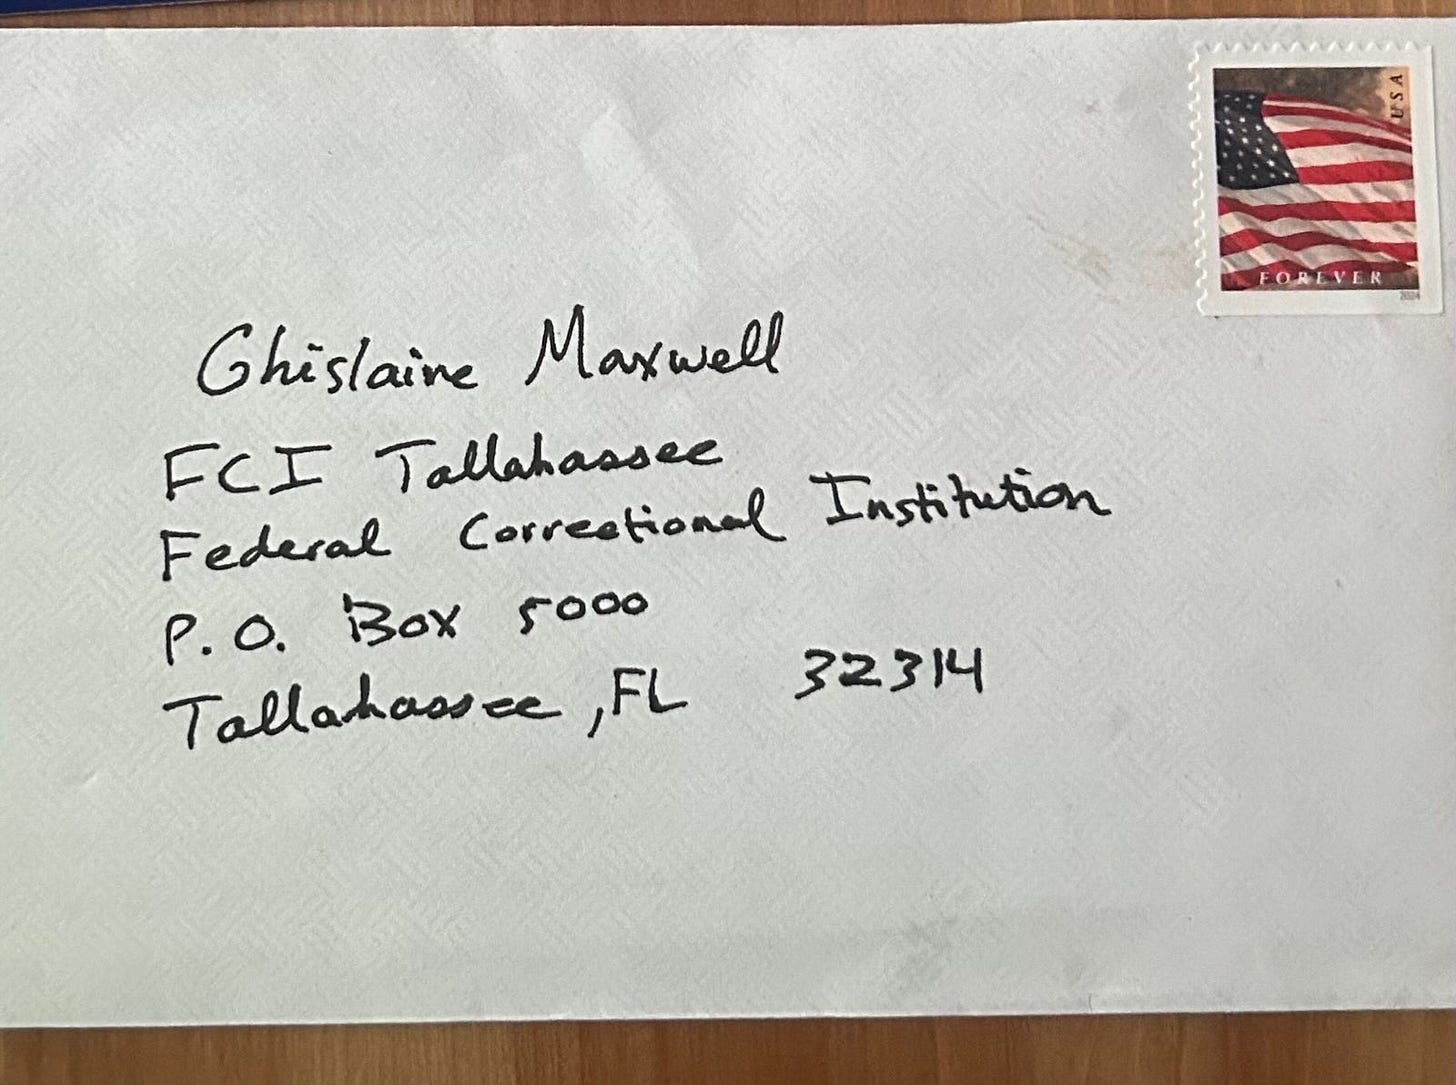 USA
FOREVER
2024
Ghislaine Maxwell
FCI Tallahassee
Federal Correctional Institution
P.O. Box 5000
Tallahassee, FL 32314